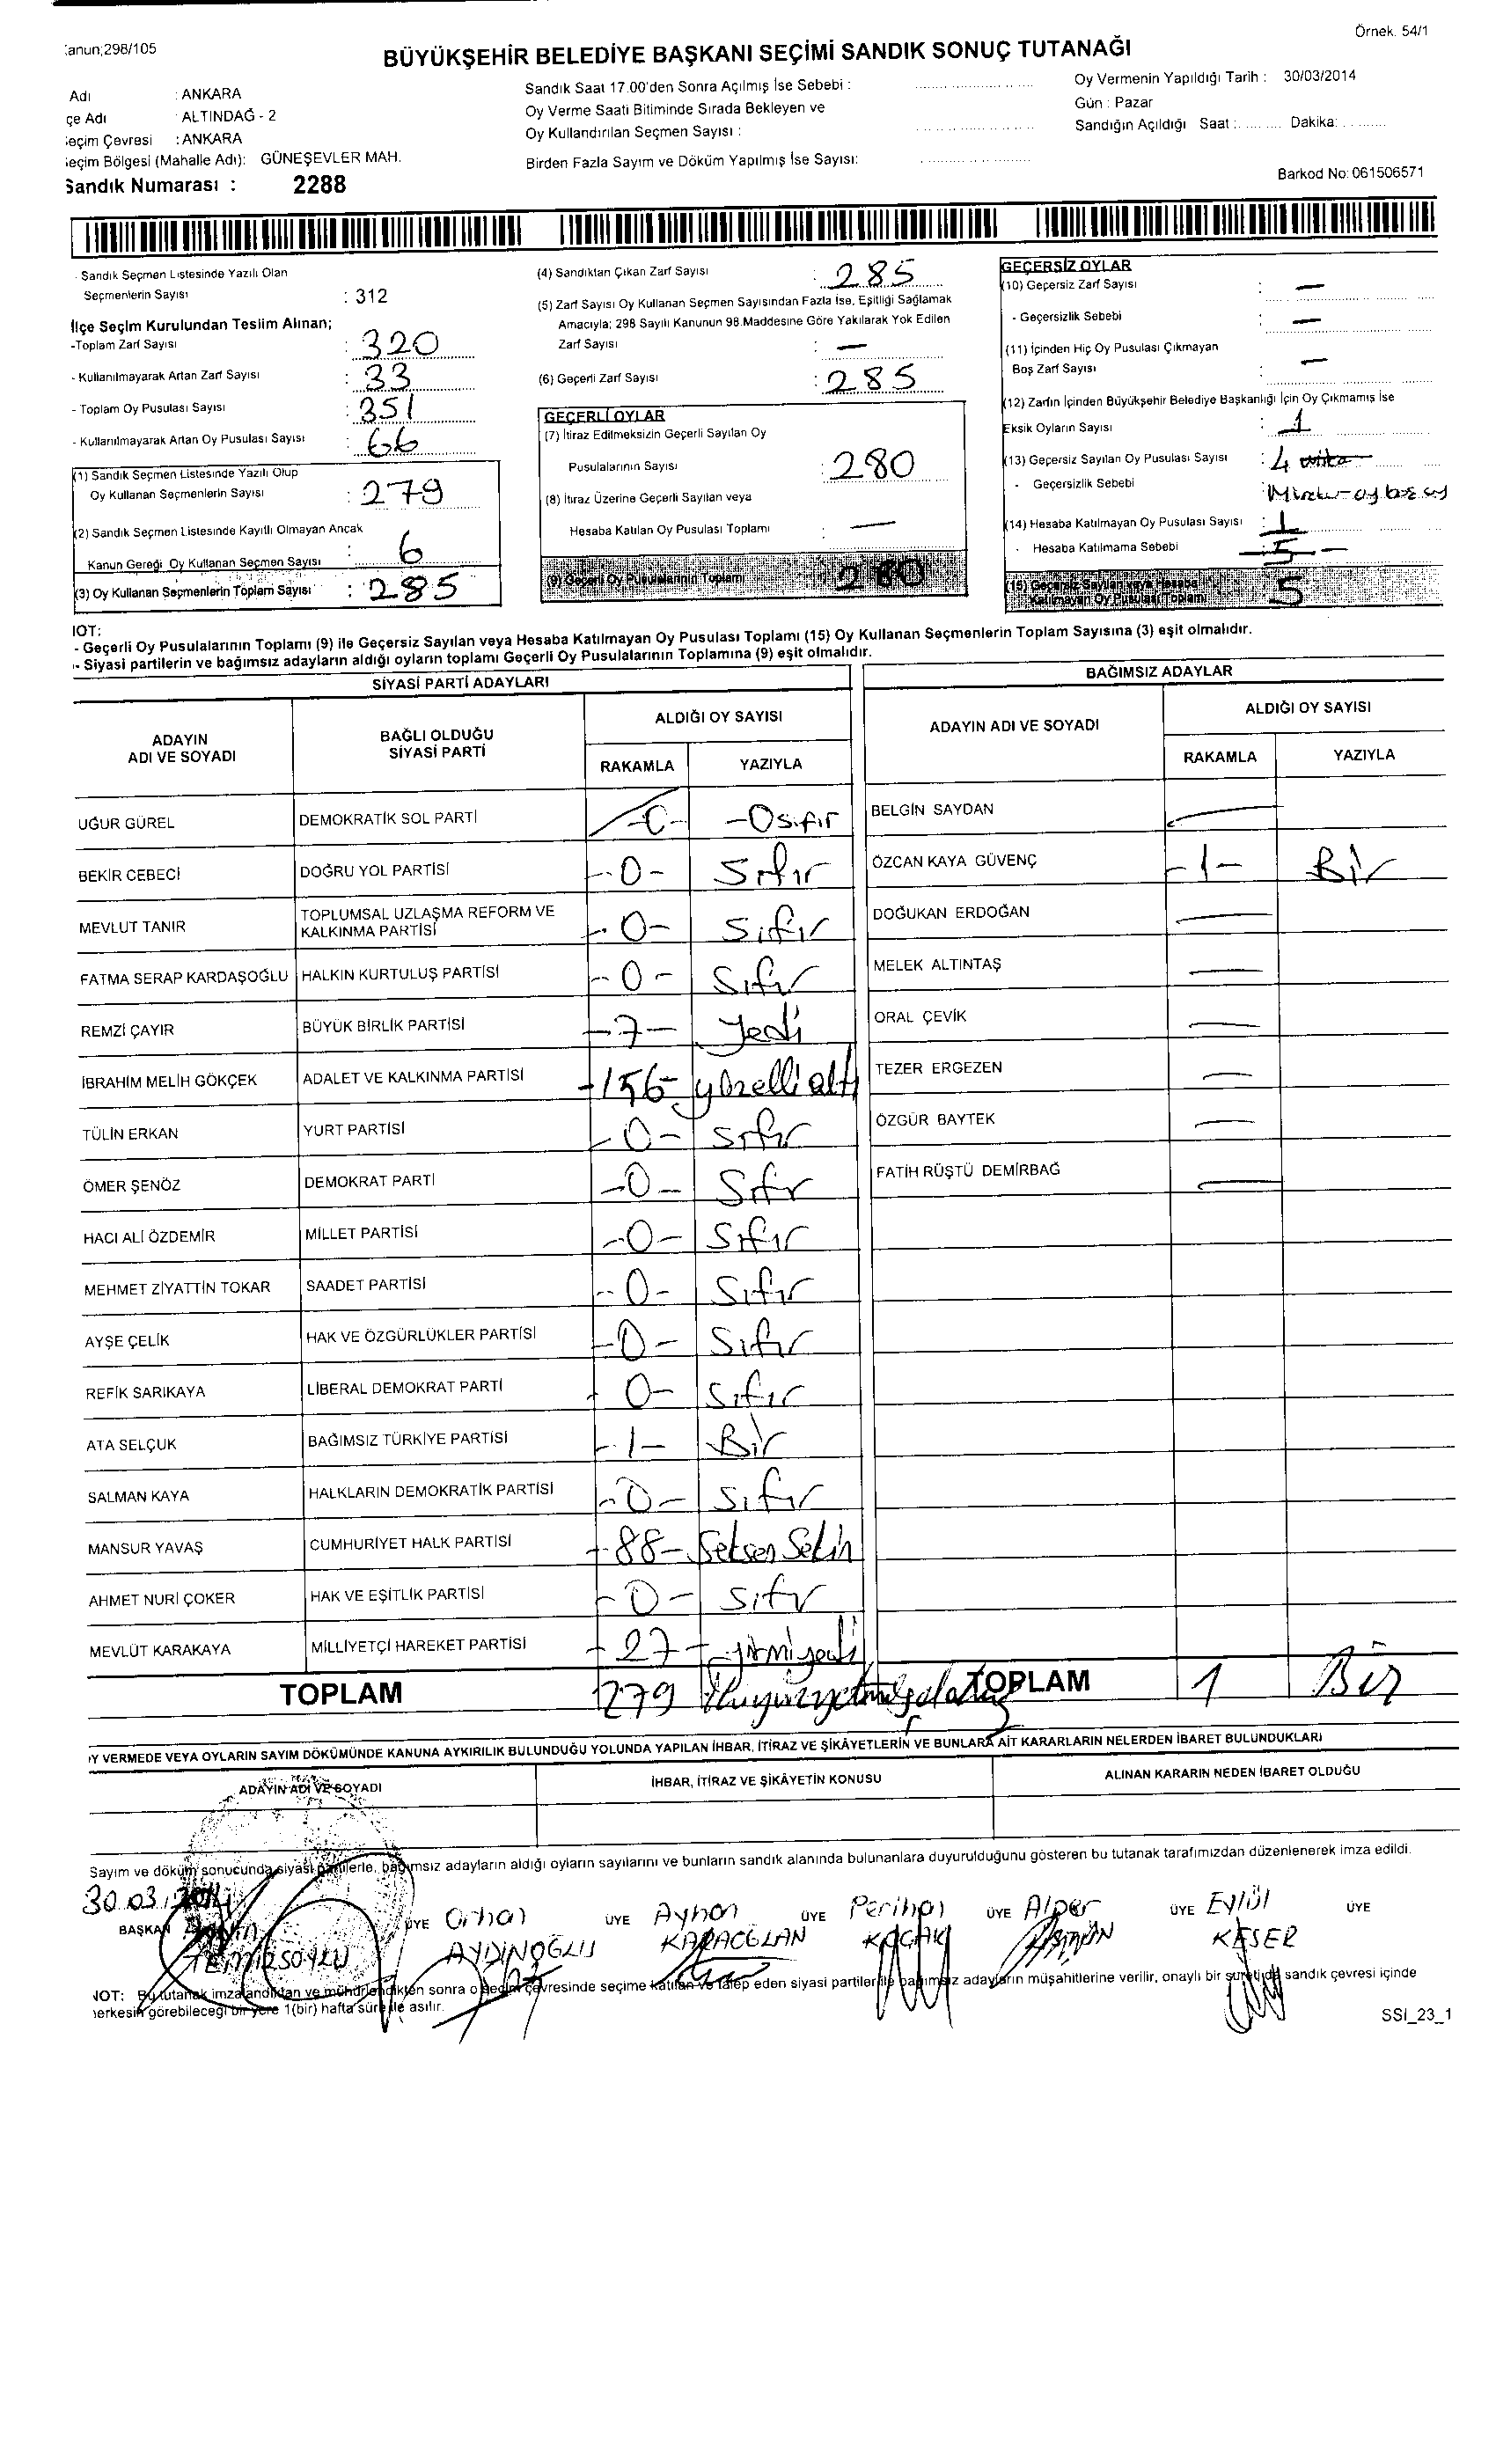 Örnek. 54/1
anun;298/105
BÜYÜKŞEHİR BELEDİYE BAŞKANI SEÇİMİ SANDIK SONUÇ TUTANAĞI
Adı : ANKARA
çe Adı ALTINDAĞ - 2
eçim Çevresi : ANKARA
eçim Bölgesi (Mahalle Adı): GÜNEŞEVLER MAH.
Sandık Numarası : 2288
Sandık Saat 17.00'den Sonra Açılmış İse Sebebi :
Oy Verme Saati Bitiminde Sırada Bekleyen ve
Oy Kullandırılan Seçmen Sayısı :
Birden Fazla Sayım ve Döküm Yapılmış İse Sayısı:
Oy Vermenin Yapıldığı Tarih : 30/03/2014
Gün : Pazar
Sandığın Açıldığı Saat : Dakika:
Barkod No: 061506571
- Sandık Seçmen Listesinde Yazılı Olan
Seçmenlerin Sayısı : 312
İlçe Seçim Kurulundan Teslim Alınan;
-Toplam Zarf Sayısı : 320
- Kullanılmayarak Artan Zarf Sayısı : 33
- Toplam Oy Pusulası Sayısı : 351
- Kullanılmayarak Artan Oy Pusulası Sayısı : 66
(1) Sandık Seçmen Listesinde Yazılı Olup
Oy Kullanan Seçmenlerin Sayısı : 279
(2) Sandık Seçmen Listesinde Kayıtlı Olmayan Ancak
Kanun Gereği Oy Kullanan Seçmen Sayısı : 6
(3) Oy Kullanan Seçmenlerin Toplam Sayısı : 285
(4) Sandıktan Çıkan Zarf Sayısı : 285
(5) Zarf Sayısı Oy Kullanan Seçmen Sayısından Fazla İse, Eşitliği Sağlamak
Amacıyla; 298 Sayılı Kanunun 98.Maddesine Göre Yakılarak Yok Edilen
Zarf Sayısı : —
(6) Geçerli Zarf Sayısı : 285
GEÇERLİ OYLAR
(7) İtiraz Edilmeksizin Geçerli Sayılan Oy
Pusulalarının Sayısı : 280
(8) İtiraz Üzerine Geçerli Sayılan veya
Hesaba Katılan Oy Pusulası Toplamı : —
(9) Geçerli Oy Pusulalarının Toplamı 280
GEÇERSİZ OYLAR
(10) Geçersiz Zarf Sayısı : —
- Geçersizlik Sebebi : —
(11) İçinden Hiç Oy Pusulası Çıkmayan
Boş Zarf Sayısı : —
(12) Zarfın İçinden Büyükşehir Belediye Başkanlığı İçin Oy Çıkmamış İse
Eksik Oyların Sayısı : 1
(13) Geçersiz Sayılan Oy Pusulası Sayısı : 4
- Geçersizlik Sebebi :
(14) Hesaba Katılmayan Oy Pusulası Sayısı : 1
- Hesaba Katılmama Sebebi 5 —
(15) Geçersiz Sayılan veya Hesaba
Katılmayan Oy Pusulası Toplamı 5
NOT:
- Geçerli Oy Pusulalarının Toplamı (9) ile Geçersiz Sayılan veya Hesaba Katılmayan Oy Pusulası Toplamı (15) Oy Kullanan Seçmenlerin Toplam Sayısına (3) eşit olmalıdır.
- Siyasi partilerin ve bağımsız adayların aldığı oyların toplamı Geçerli Oy Pusulalarının Toplamına (9) eşit olmalıdır.
SİYASİ PARTİ ADAYLARI
ADAYIN ADI VE SOYADI
BAĞLI OLDUĞU SİYASİ PARTİ
ALDIĞI OY SAYISI
RAKAMLA YAZIYLA
UĞUR GÜREL DEMOKRATİK SOL PARTİ -0- -0 sıfır
BEKİR CEBECİ DOĞRU YOL PARTİSİ -0- Sıfır
MEVLUT TANIR TOPLUMSAL UZLAŞMA REFORM VE KALKINMA PARTİSİ -0- Sıfır
FATMA SERAP KARDAŞOĞLU HALKIN KURTULUŞ PARTİSİ -0- Sıfır
REMZİ ÇAYIR BÜYÜK BİRLİK PARTİSİ -7- Yedi
İBRAHİM MELİH GÖKÇEK ADALET VE KALKINMA PARTİSİ -156- yüzelli altı
TÜLİN ERKAN YURT PARTİSİ -0- sıfır
ÖMER ŞENÖZ DEMOKRAT PARTİ -0- Sıfır
HACI ALİ ÖZDEMİR MİLLET PARTİSİ -0- Sıfır
MEHMET ZİYATTİN TOKAR SAADET PARTİSİ -0- Sıfır
AYŞE ÇELİK HAK VE ÖZGÜRLÜKLER PARTİSİ -0- Sıfır
REFİK SARIKAYA LİBERAL DEMOKRAT PARTİ - 0- sıfır
ATA SELÇUK BAĞIMSIZ TÜRKİYE PARTİSİ -1- Bir
SALMAN KAYA HALKLARIN DEMOKRATİK PARTİSİ -0- sıfır
MANSUR YAVAŞ CUMHURİYET HALK PARTİSİ -88- Seksen Sekin
AHMET NURİ ÇOKER HAK VE EŞİTLİK PARTİSİ -0- sıfır
MEVLÜT KARAKAYA MİLLİYETÇİ HAREKET PARTİSİ -27- yirmiyedi
TOPLAM 279
BAĞIMSIZ ADAYLAR
ADAYIN ADI VE SOYADI
ALDIĞI OY SAYISI
RAKAMLA YAZIYLA
BELGİN SAYDAN —
ÖZCAN KAYA GÜVENÇ -1- Bir
DOĞUKAN ERDOĞAN —
MELEK ALTINTAŞ —
ORAL ÇEVİK —
TEZER ERGEZEN —
ÖZGÜR BAYTEK —
FATİH RÜŞTÜ DEMİRBAĞ —
TOPLAM 1 Bir
Y VERMEDE VEYA OYLARIN SAYIM DÖKÜMÜNDE KANUNA AYKIRILIK BULUNDUĞU YOLUNDA YAPILAN İHBAR, İTİRAZ VE ŞİKÂYETLERİN VE BUNLARA AİT KARARLARIN NELERDEN İBARET BULUNDUKLARI
ADAYIN ADI VE SOYADI İHBAR, İTİRAZ VE ŞİKÂYETİN KONUSU ALINAN KARARIN NEDEN İBARET OLDUĞU
Sayım ve döküm sonucunda siyasi partilerle, bağımsız adayların aldığı oyların sayılarını ve bunların sandık alanında bulunanlara duyurulduğunu gösteren bu tutanak tarafımızdan düzenlenerek imza edildi.
30.03.2014
BAŞKAN
ÜYE Orhan AYDINOĞLU
ÜYE Ayhan KARACOĞLAN
ÜYE Perihan KOÇAK
ÜYE Alper
ÜYE Eylül KESER
ÜYE
NOT: Bu tutanak imzalandıktan ve mühürlendikten sonra o seçim çevresinde seçime katılan ve talep eden siyasi partiler ile bağımsız adayların müşahitlerine verilir, onaylı bir sureti de sandık çevresi içinde
herkesin görebileceği bir yere 1(bir) hafta süre ile asılır.
SSI_23_1